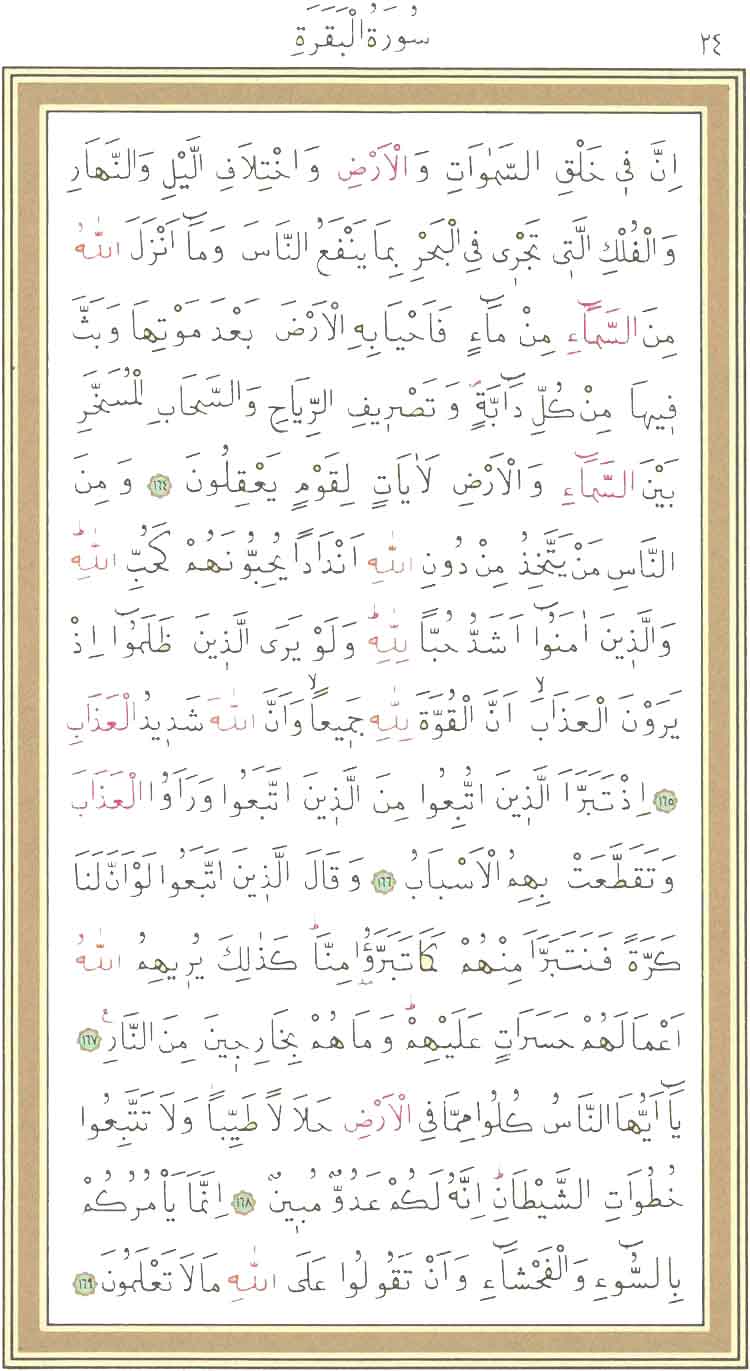 سُورَةُ الْبَقَرَةِ
٢٤
اِنَّ ف۪ي خَلْقِ السَّمٰوَاتِ وَالْاَرْضِ وَاخْتِلَافِ الَّيْلِ وَالنَّهَارِ
وَالْفُلْكِ الَّت۪ي تَجْر۪ي فِي الْبَحْرِ بِمَا يَنْفَعُ النَّاسَ وَمَٓا اَنْزَلَ اللّٰهُ
مِنَ السَّمَٓاءِ مِنْ مَٓاءٍ فَاَحْيَا بِهِ الْاَرْضَ بَعْدَ مَوْتِهَا وَبَثَّ
ف۪يهَا مِنْ كُلِّ دَٓابَّةٍۖ وَتَصْر۪يفِ الرِّيَاحِ وَالسَّحَابِ الْمُسَخَّرِ
بَيْنَ السَّمَٓاءِ وَالْاَرْضِ لَاٰيَاتٍ لِقَوْمٍ يَعْقِلُونَ ﴿١٦٤﴾ وَمِنَ
النَّاسِ مَنْ يَتَّخِذُ مِنْ دُونِ اللّٰهِ اَنْدَادًا يُحِبُّونَهُمْ كَحُبِّ اللّٰهِۜ
وَالَّذ۪ينَ اٰمَنُٓوا اَشَدُّ حُبًّا لِلّٰهِۜ وَلَوْ يَرَى الَّذ۪ينَ ظَلَمُٓوا اِذْ
يَرَوْنَ الْعَذَابَۙ اَنَّ الْقُوَّةَ لِلّٰهِ جَم۪يعًاۙ وَاَنَّ اللّٰهَ شَد۪يدُ الْعَذَابِ
﴿١٦٥﴾ اِذْ تَبَرَّاَ الَّذ۪ينَ اتُّبِعُوا مِنَ الَّذ۪ينَ اتَّبَعُوا وَرَاَوُا الْعَذَابَ
وَتَقَطَّعَتْ بِهِمُ الْاَسْبَابُ ﴿١٦٦﴾ وَقَالَ الَّذ۪ينَ اتَّبَعُوا لَوْ اَنَّ لَنَا
كَرَّةً فَنَتَبَرَّاَ مِنْهُمْ كَمَا تَبَرَّؤُ۫ا مِنَّاۜ كَذٰلِكَ يُر۪يهِمُ اللّٰهُ
اَعْمَالَهُمْ حَسَرَاتٍ عَلَيْهِمْۜ وَمَا هُمْ بِخَارِج۪ينَ مِنَ النَّارِ۟ ﴿١٦٧﴾
يَٓا اَيُّهَا النَّاسُ كُلُوا مِمَّا فِي الْاَرْضِ حَلَالًا طَيِّبًاۘ وَلَا تَتَّبِعُوا
خُطُوَاتِ الشَّيْطَانِۜ اِنَّهُ لَكُمْ عَدُوٌّ مُب۪ينٌ ﴿١٦٨﴾ اِنَّمَا يَأْمُرُكُمْ
بِالسُّٓوءِ وَالْفَحْشَٓاءِ وَاَنْ تَقُولُوا عَلَى اللّٰهِ مَا لَا تَعْلَمُونَ ﴿١٦٩﴾